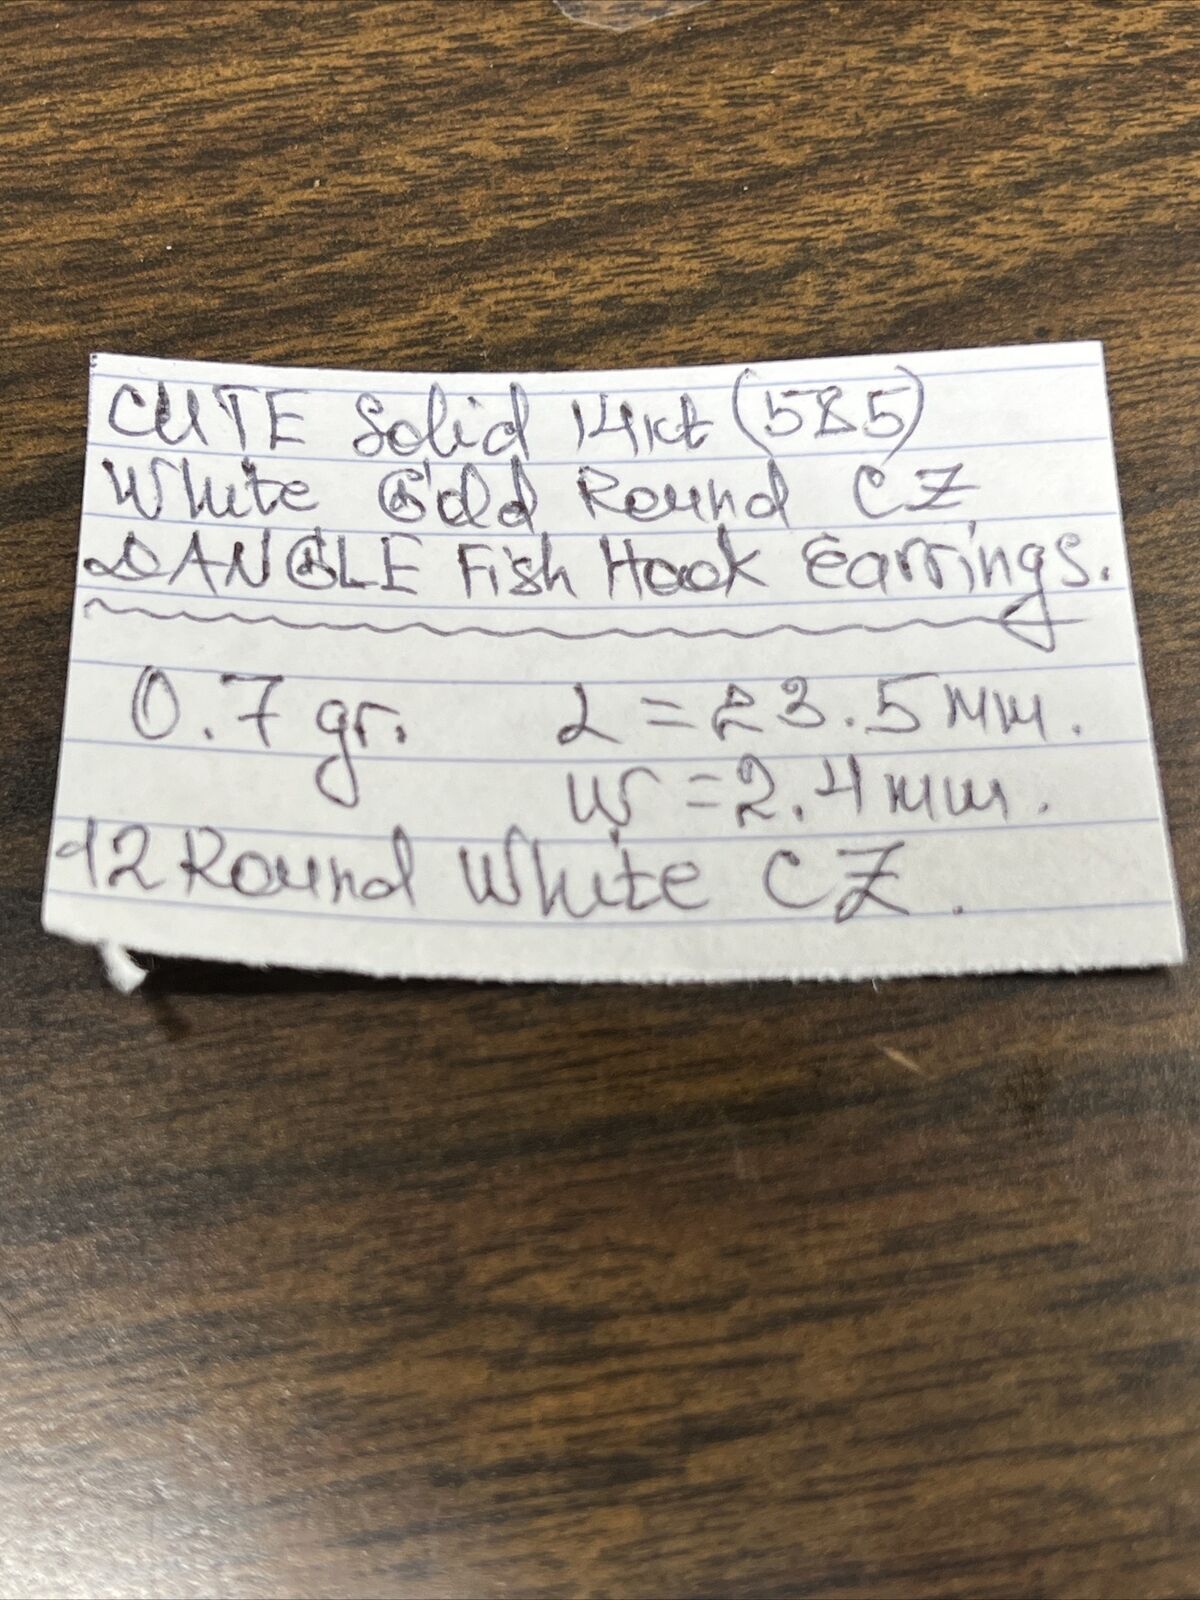 CUTE Solid 14kt (585)
White Gold Round CZ
DANGLE Fish Hook Earrings.
0.7 gr. L = 23.5 mm.
W = 2.4 mm.
12 Round White CZ.